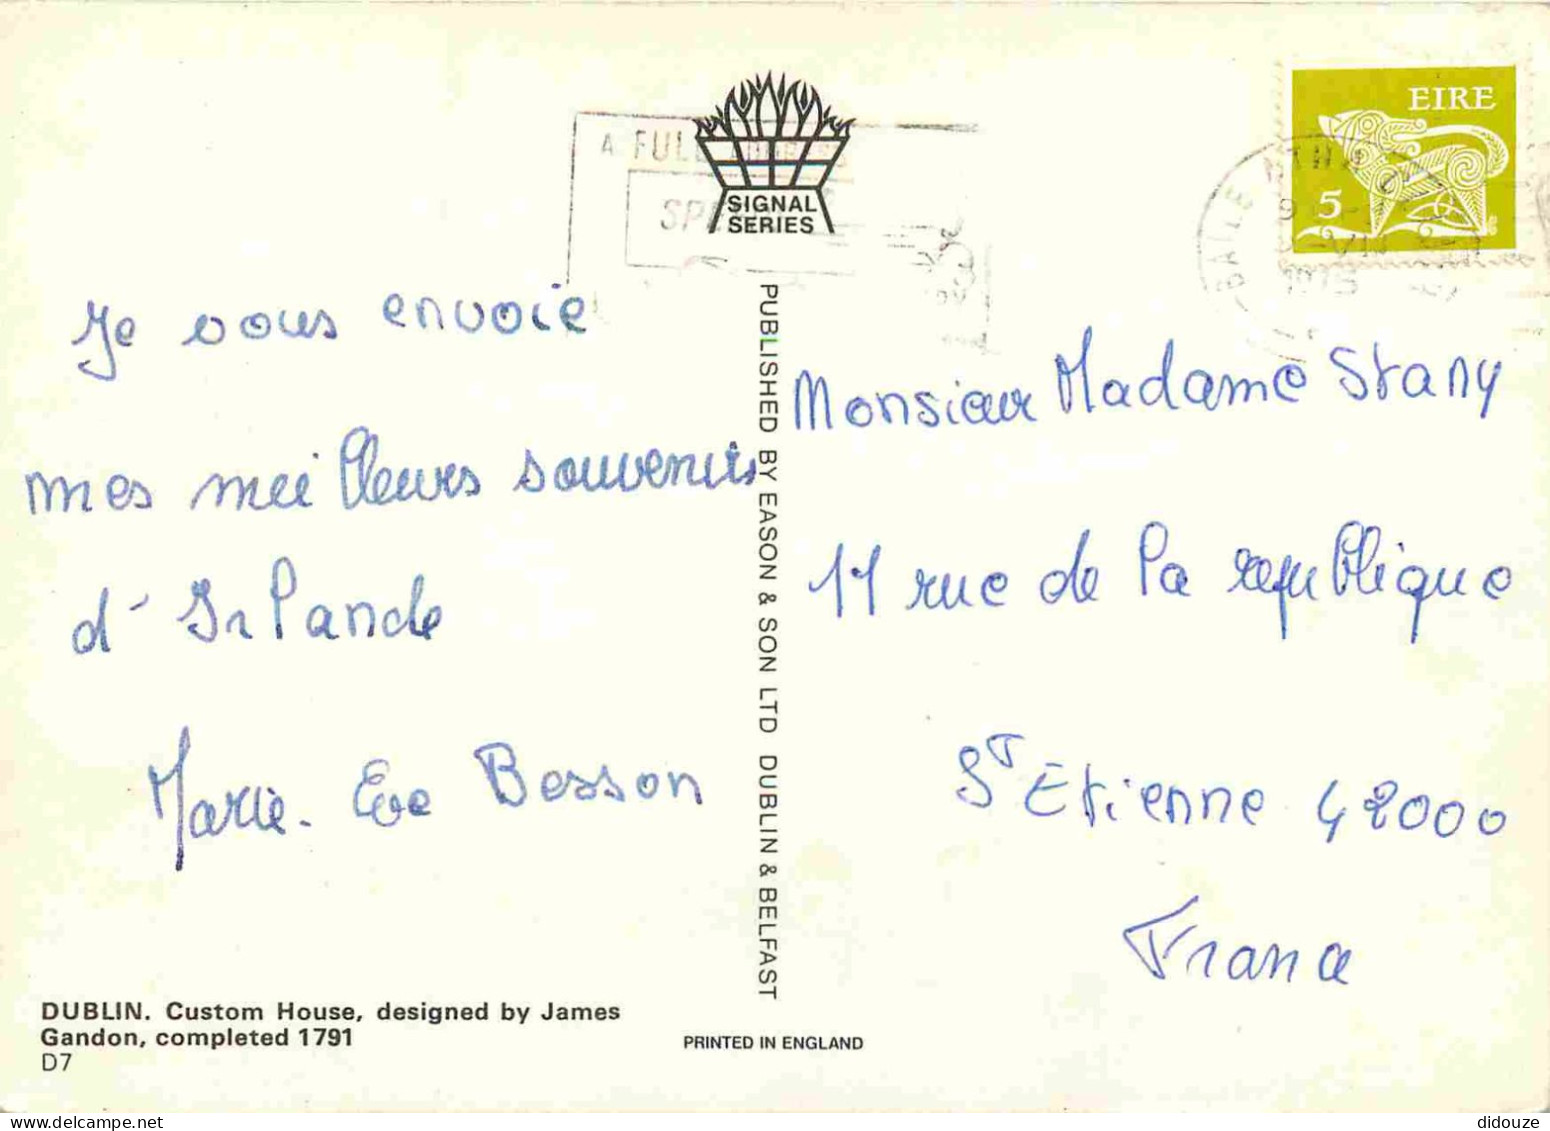 EIRE
5
BAILE ATHA
1975
A FULL ADDRESS
SIGNAL
SERIES
Je vous envoie
mes meilleures souvenirs
d'Irlande
Marie-Eve Besson
PUBLISHED BY EASON & SON LTD DUBLIN & BELFAST
Monsieur Madame Stany
11 rue de la republique
ST Etienne 42000
France
DUBLIN. Custom House, designed by James
Gandon, completed 1791
D7
PRINTED IN ENGLAND
didouze